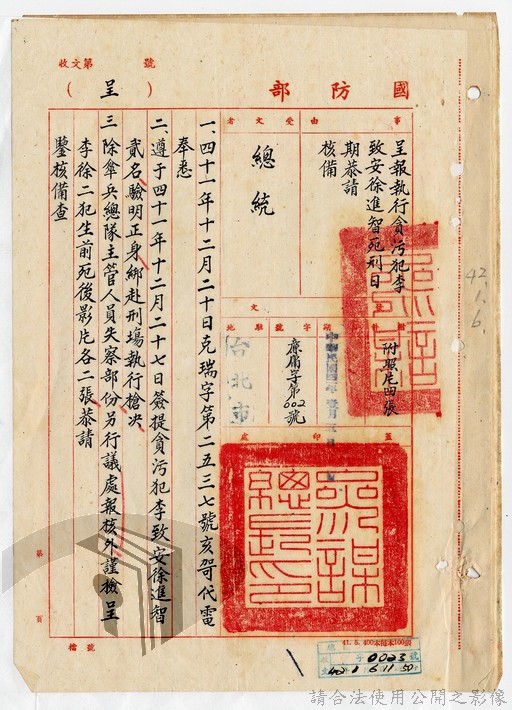 國防部
（呈）
收文第　號
事由
呈報執行貪污犯李
致安徐進智死刑日
期恭請
核備
受文者
總統
附照片四張
中華民國四二年元月五日
廉庸字第002號
駐地
台北市
蓋印處
參謀總長印
一、四十一年十二月二十日克瑞字第二五三七號亥哿代電
奉悉
二、遵于四十一年十二月二十七日簽提貪污犯李致安徐進智
貳名驗明正身綁赴刑場執行槍決
三除傘兵總隊主管人員失察部份另行議處報核外謹檢呈
李徐二犯生前死後影片各二張恭請
鑒核備查
第　頁
檔號
42.1.6.
41. 5. 400本每本100張
0023號
42 1 6 11 50
請合法使用公開之影像